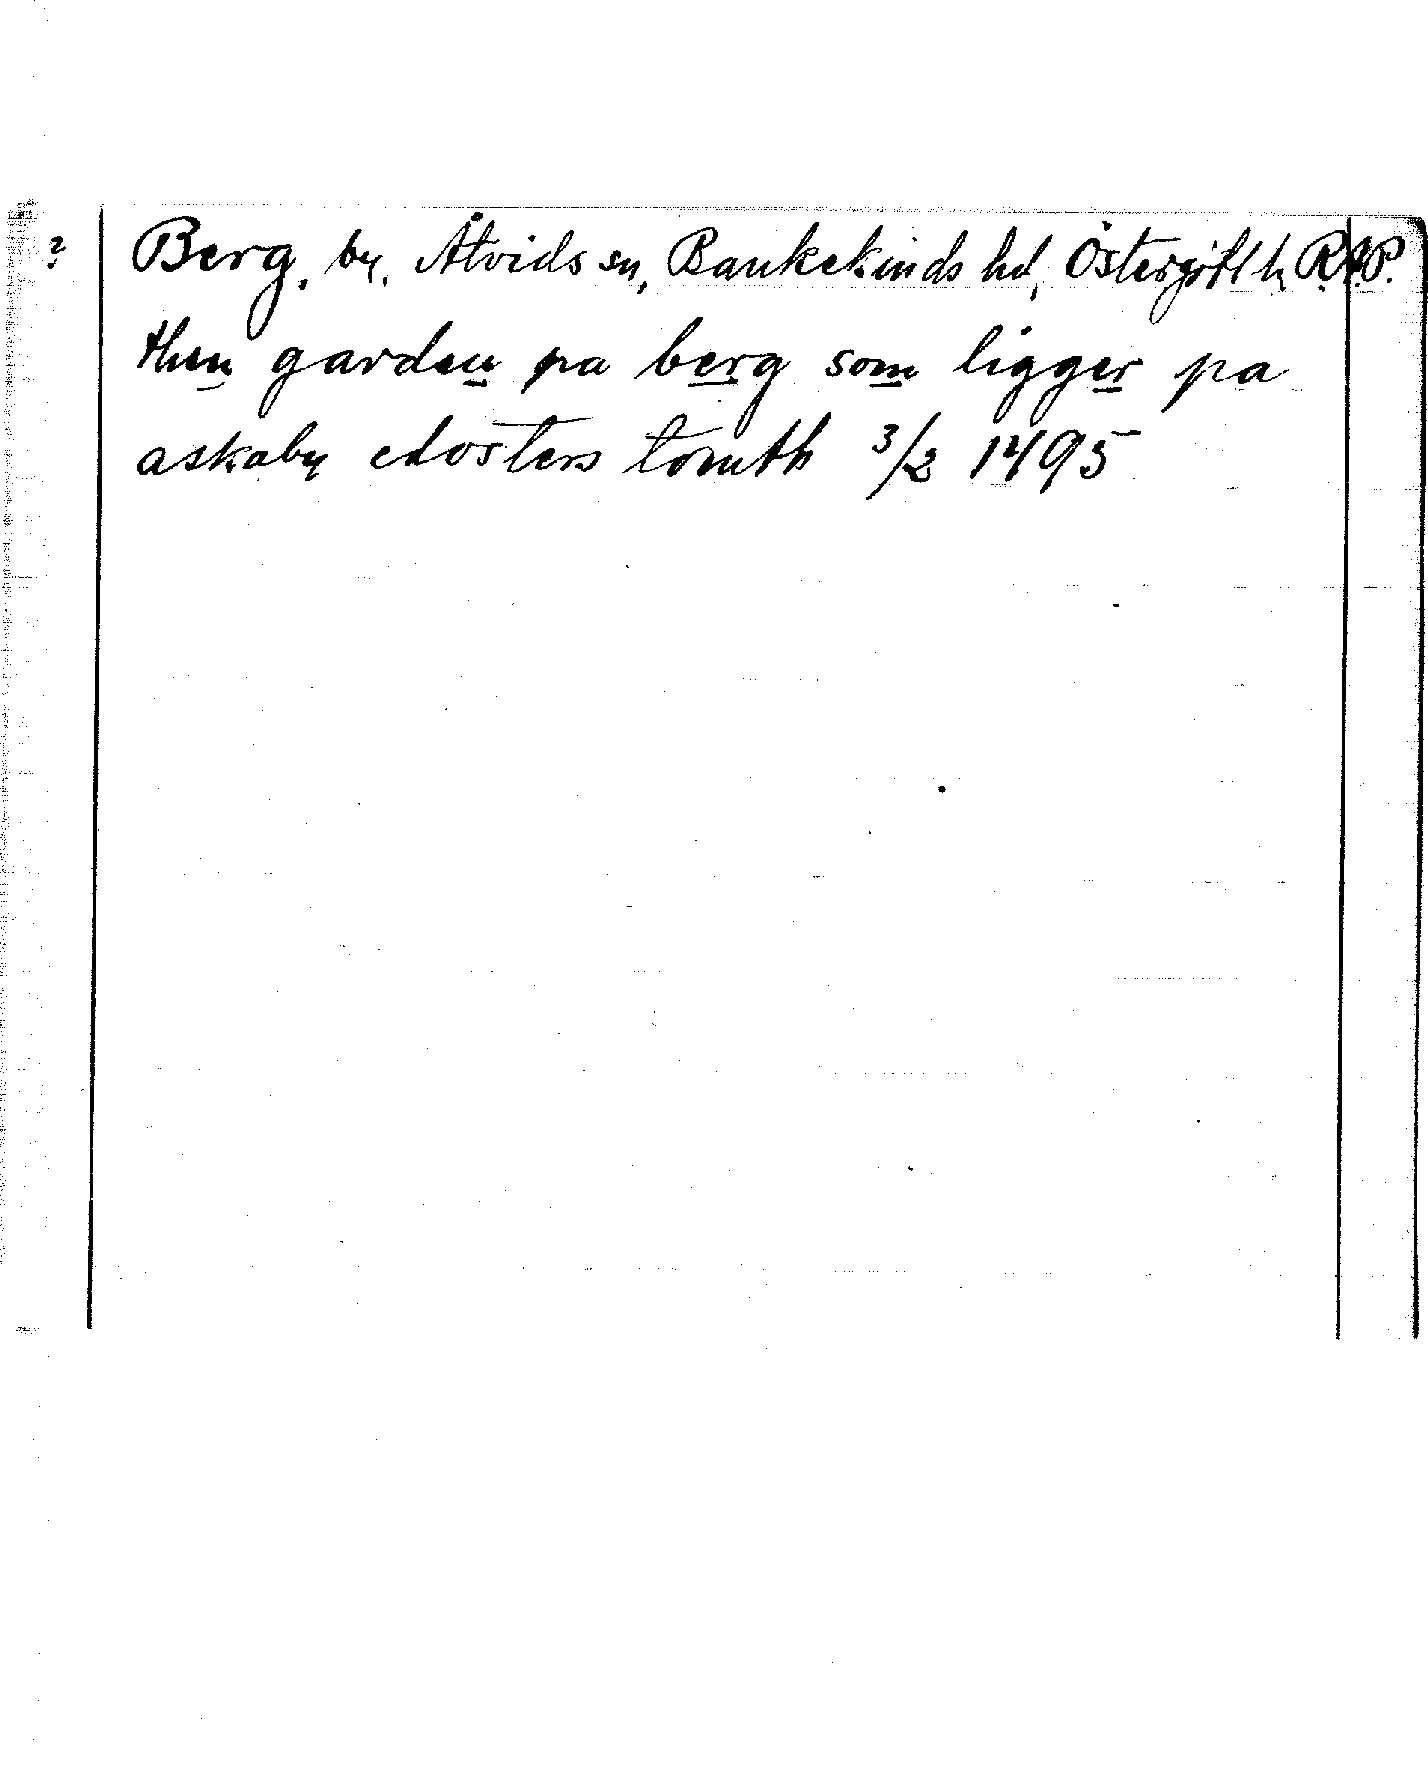 ? Berg, by, Åtvids sn, Bankekinds hd, Östergötl l. R.A.P.
then garden pa berg som ligger pa
askaby closters tomth 3/2 1495